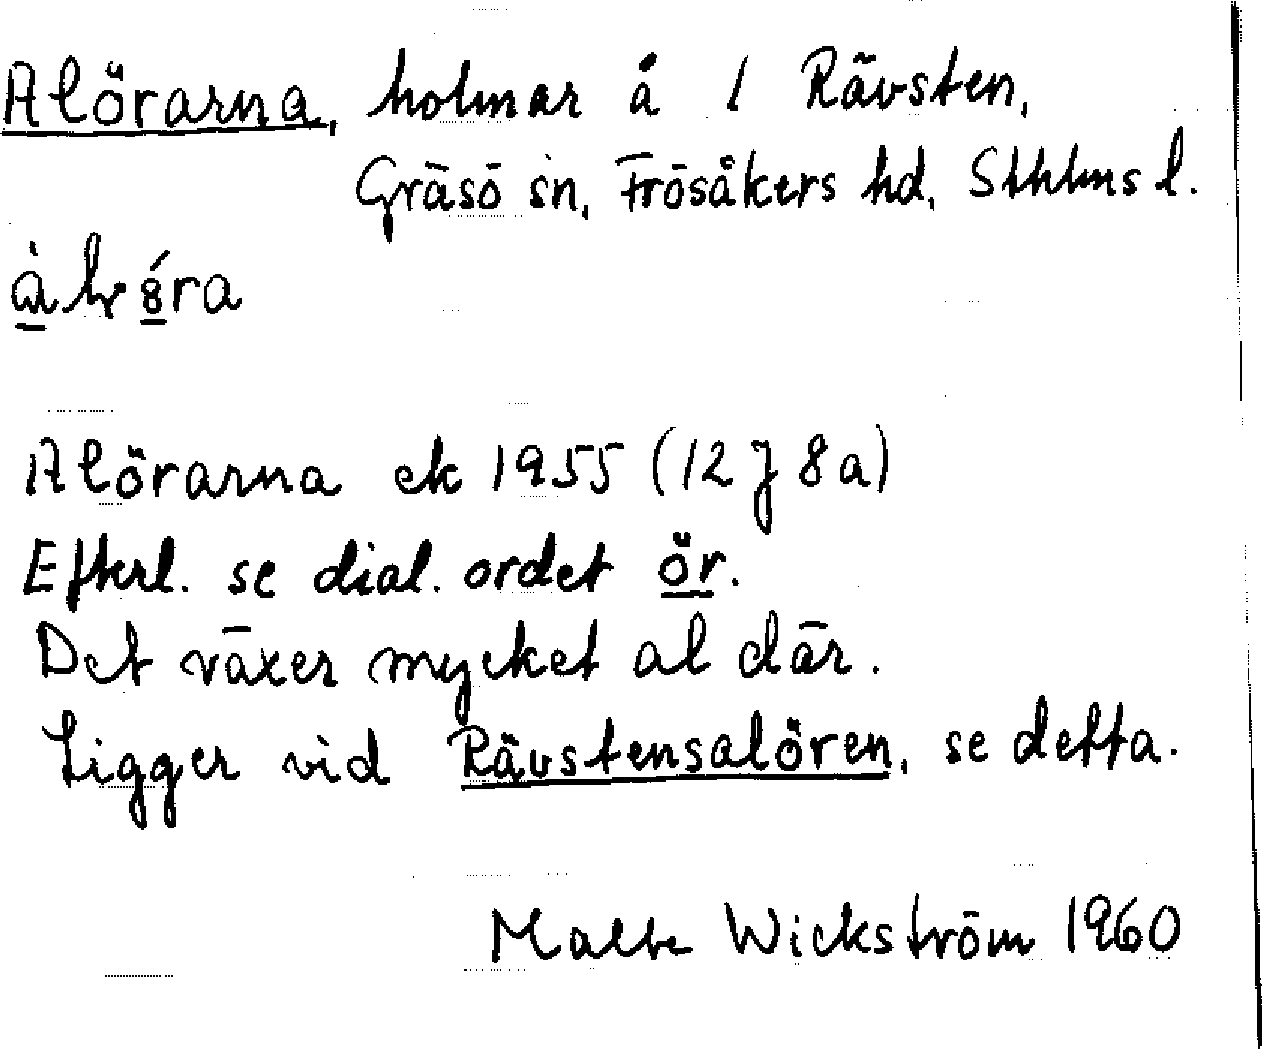 Alörarna, holmar å 1 Rävsten,
Gräsö sn, Frösåkers hd, Sthlms l.
Alörarna ek 1955 (12 J 8a)
Efterl. se dial. ordet ör.
Det växer mycket al där.
Ligger vid Rävstensalören, se detta.
Malte Wickström 1960